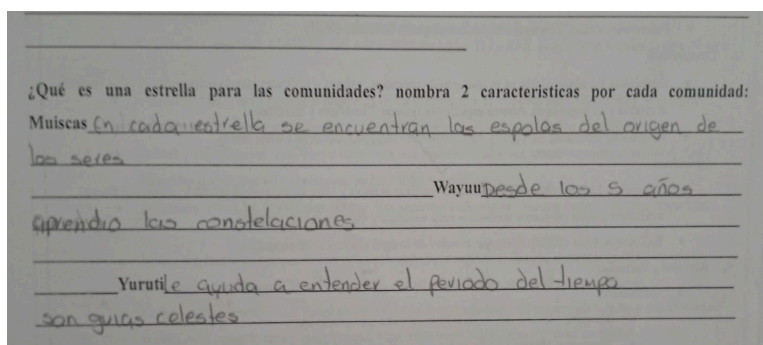 ¿Qué es una estrella para las comunidades? nombra 2 caracteristicas por cada comunidad:
Muiscas En cada estrella se encuentran las espolas del origen de
los seres
Wayuu Desde los 5 años
aprendio las constelaciones
Yuruti le ayuda a entender el periodo del tiempo
son guias celestes